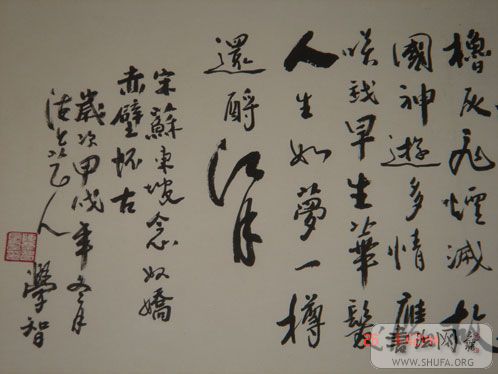 櫓灰飛煙滅故
國神遊多情應
咲我早生華髮
人生如夢一樽
還酹江月
宋蘇東坡念奴嬌
赤壁怀古
歲次甲戌年冬月
人學智
书法网
WWW.SHUFA.ORG